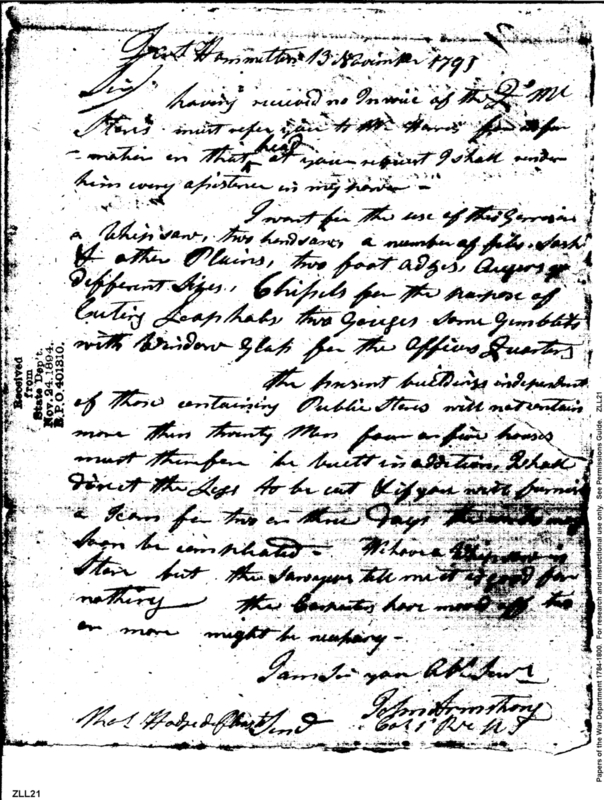 Fort Hammilton 13 November 1791
Sir
having received no Invoice of the Qr Mr
Stores must refer you to Mr Harris for infor
-mation on that head at your request I shall render
him every assistance in my power -
I want for the use of this Garrison
a Whipsaw, two handsaws, a number of files, Sash
& other Plains, two foot adzes, Augers of
different Sizes, Chissels for the purpose of
Cuting two Gouges Some Gimblets
with Window Glass for the Officers Quarters
the present buildings independent
of those containing Public Stores will not contain
more then twenty Men four or five houses
must therefore be built in addition, I shall
direct the Logs to be cut & if you will furnish
a Team for two or three days the may
soon be compleated - We have a Whipsaw in
Store but the Sawayers tell me it is good for
nothing the Carpenters have moved off two
or more might be necessary -
I am Sir your Obt Servt
John Armstrong
Capt 1st Rt
Received
from
State Dep't.
Nov. 24. 1894.
R.P.O. 401310.
Papers of the War Department 1784-1800. For research and instructional use only. See Permissions Guide. ZLL21
ZLL21